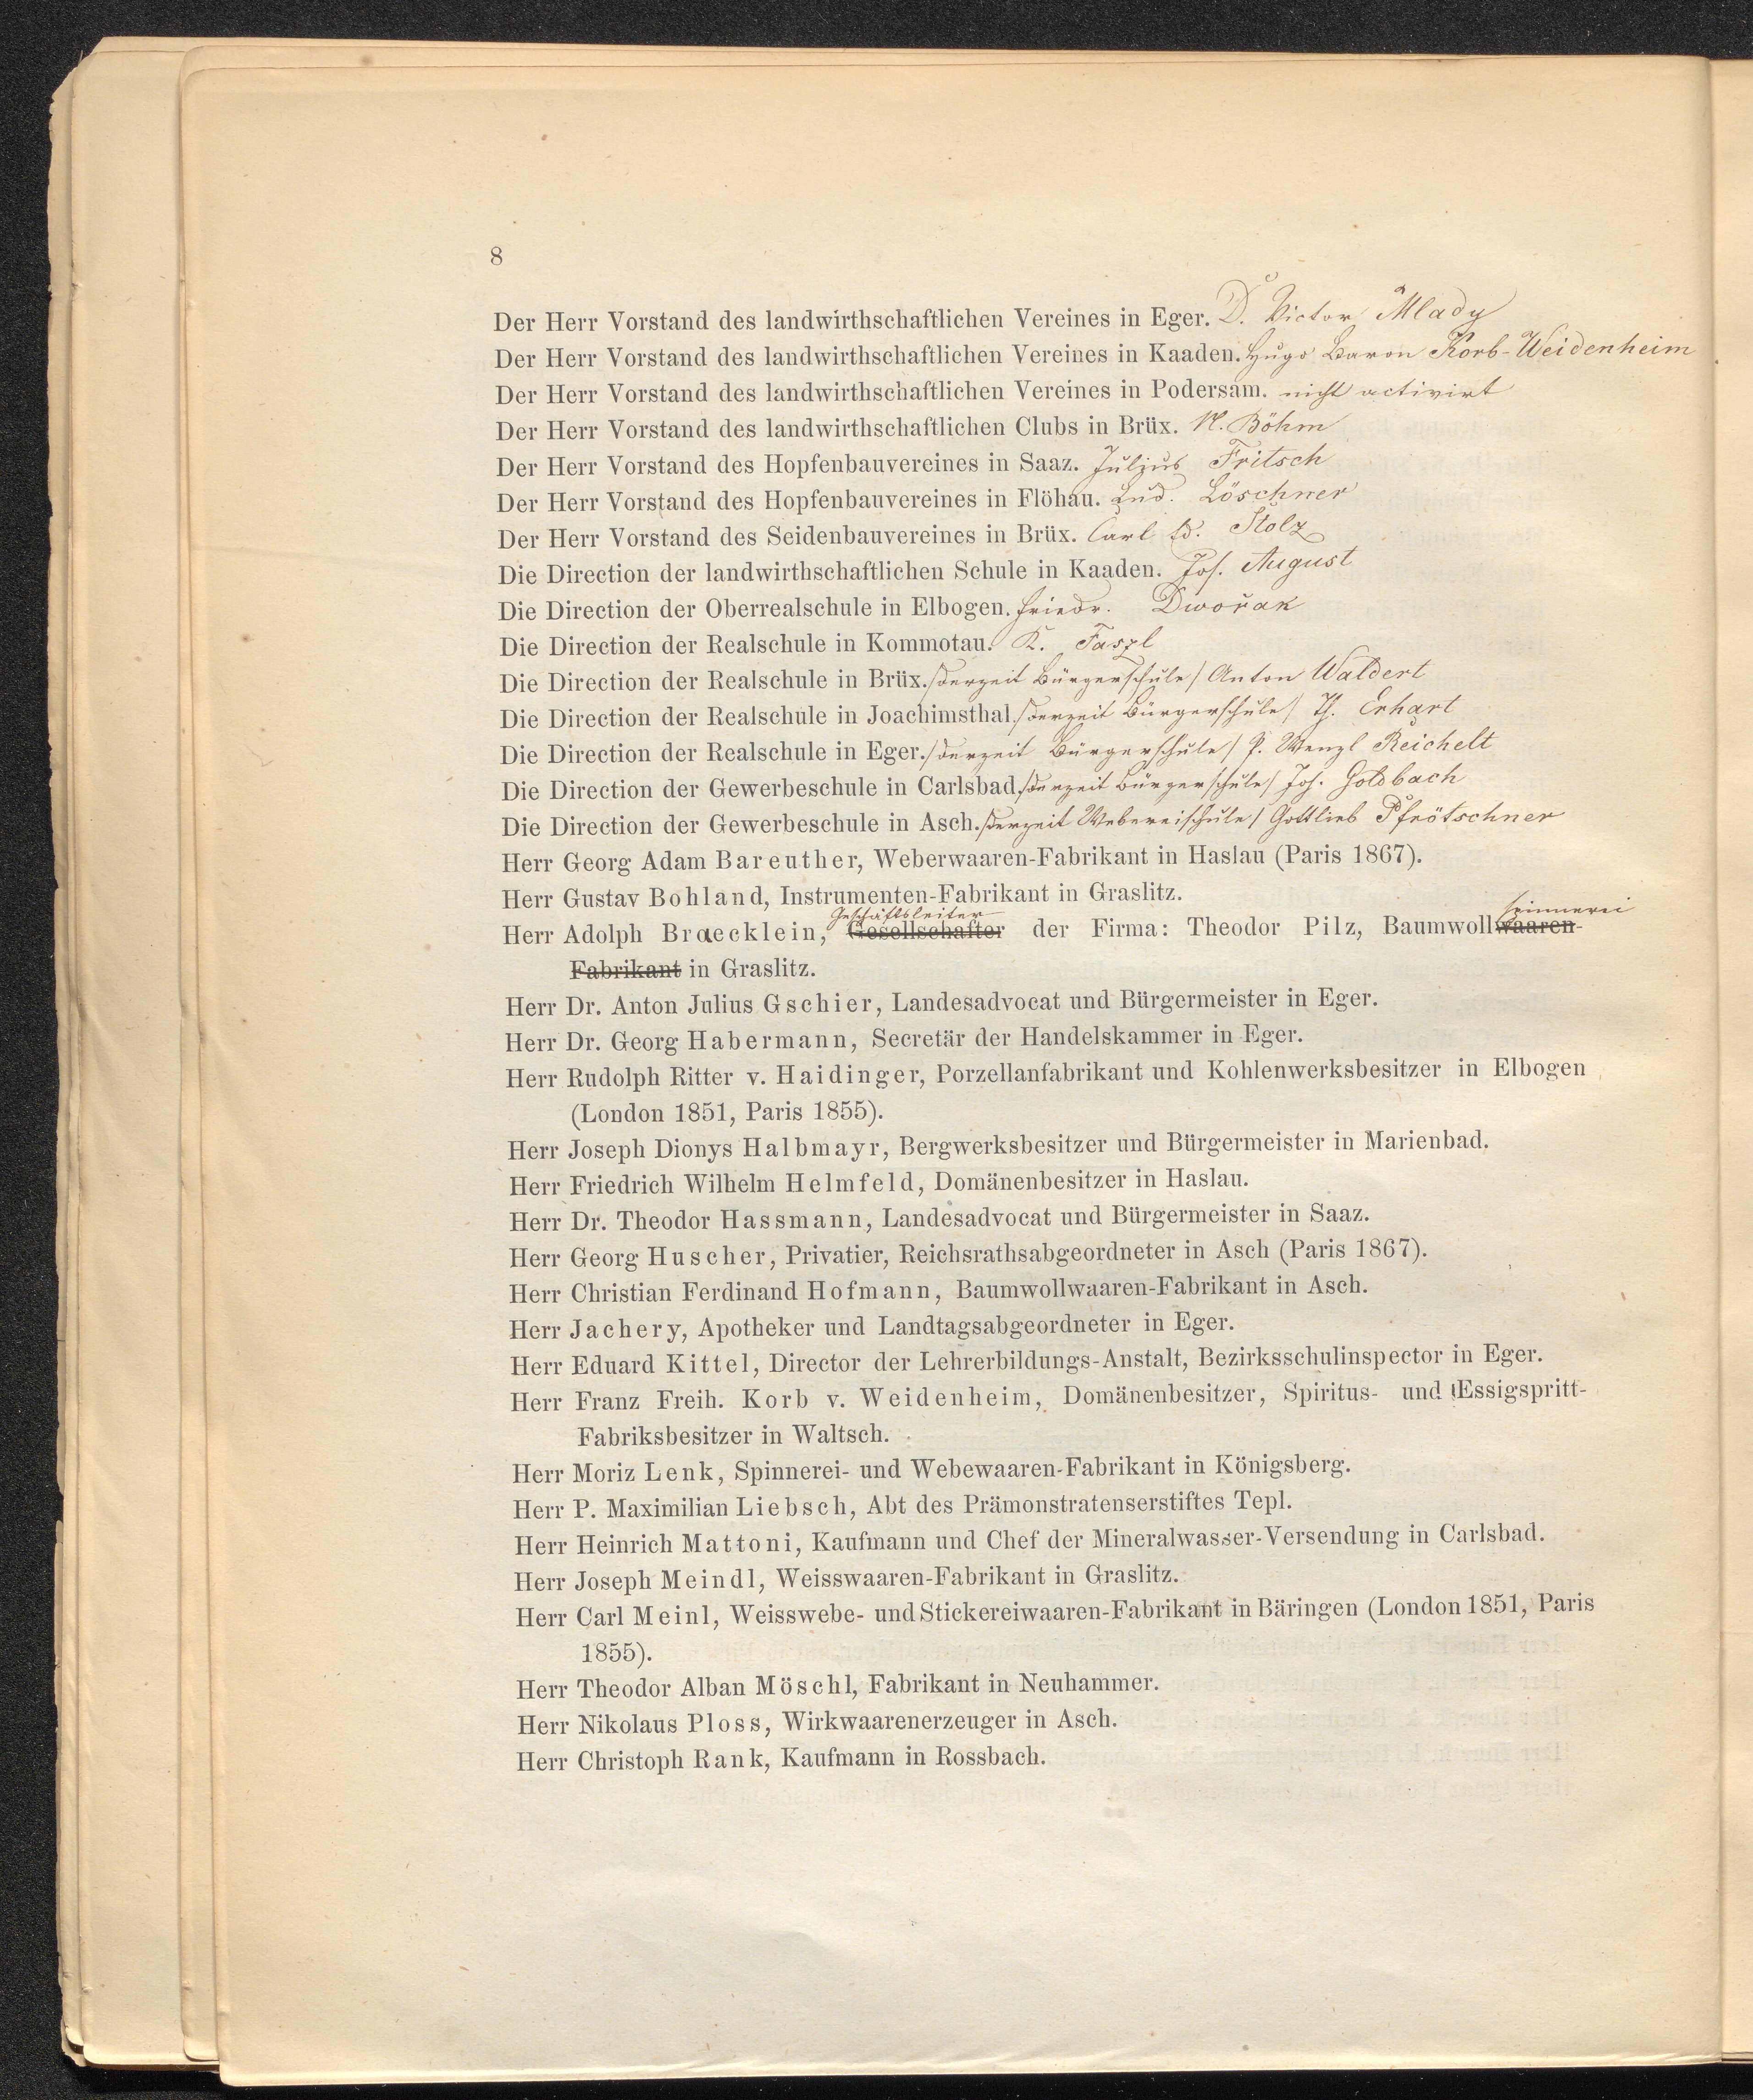 8
Der Herr Vorstand des landwirthschaftlichen Vereines in Eger. Dr. Victor Mlady
Der Herr Vorstand des landwirthschaftlichen Vereines in Kaaden. Hugo Baron Korb-Weidenheim
Der Herr Vorstand des landwirthschaftlichen Vereines in Podersam. nicht activirt
Der Herr Vorstand des landwirthschaftlichen Clubs in Brüx. Böhm
Der Herr Vorstand des Hopfenbauvereines in Saaz. Julius Fritsch
Der Herr Vorstand des Hopfenbauvereines in Flöhau. Lud. Löschner
Der Herr Vorstand des Seidenbauvereines in Brüx. Carl Ed. Stolz
Die Direction der landwirthschaftlichen Schule in Kaaden. Jos. August
Die Direction der Oberrealschule in Elbogen. Friedr. Dwořak
Die Direction der Realschule in Kommotau. K. Faszl
Die Direction der Realschule in Brüx. /derzeit Bürgerschule/ Anton Waldert
Die Direction der Realschule in Joachimsthal. /derzeit Bürgerschule/ Th. Erhart
Die Direction der Realschule in Eger. /derzeit Bürgerschule/ P. Wenzl Reichelt
Die Direction der Gewerbeschule in Carlsbad. /derzeit Bürgerschule/ Jos. Goldbach
Die Direction der Gewerbeschule in Asch. /derzeit Webereischule/ Gottlieb Pfrötschner
Herr Georg Adam Bareuther, Weberwaaren-Fabrikant in Haslau (Paris 1867).
Herr Gustav Bohland, Instrumenten-Fabrikant in Graslitz.
Geschäftsleiter spinnerei
Herr Adolph Braecklein, Gesellschafter der Firma: Theodor Pilz, Baumwollwaaren-
Fabrikant in Graslitz.
Herr Dr. Anton Julius Gschier, Landesadvocat und Bürgermeister in Eger.
Herr Dr. Georg Habermann, Secretär der Handelskammer in Eger.
Herr Rudolph Ritter v. Haidinger, Porzellanfabrikant und Kohlenwerksbesitzer in Elbogen
(London 1851, Paris 1855).
Herr Joseph Dionys Halbmayr, Bergwerksbesitzer und Bürgermeister in Marienbad.
Herr Friedrich Wilhelm Helmfeld, Domänenbesitzer in Haslau.
Herr Dr. Theodor Hassmann, Landesadvocat und Bürgermeister in Saaz.
Herr Georg Huscher, Privatier, Reichsrathsabgeordneter in Asch (Paris 1867).
Herr Christian Ferdinand Hofmann, Baumwollwaaren-Fabrikant in Asch.
Herr Jachery, Apotheker und Landtagsabgeordneter in Eger.
Herr Eduard Kittel, Director der Lehrerbildungs-Anstalt, Bezirksschulinspector in Eger.
Herr Franz Freih. Korb v. Weidenheim, Domänenbesitzer, Spiritus- und Essigspritt-
Fabriksbesitzer in Waltsch.
Herr Moriz Lenk, Spinnerei- und Webewaaren-Fabrikant in Königsberg.
Herr P. Maximilian Liebsch, Abt des Prämonstratenserstiftes Tepl.
Herr Heinrich Mattoni, Kaufmann und Chef der Mineralwasser-Versendung in Carlsbad.
Herr Joseph Meindl, Weisswaaren-Fabrikant in Graslitz.
Herr Carl Meinl, Weisswebe- und Stickereiwaaren-Fabrikant in Bäringen (London 1851, Paris
1855).
Herr Theodor Alban Möschl, Fabrikant in Neuhammer.
Herr Nikolaus Ploss, Wirkwaarenerzeuger in Asch.
Herr Christoph Rank, Kaufmann in Rossbach.